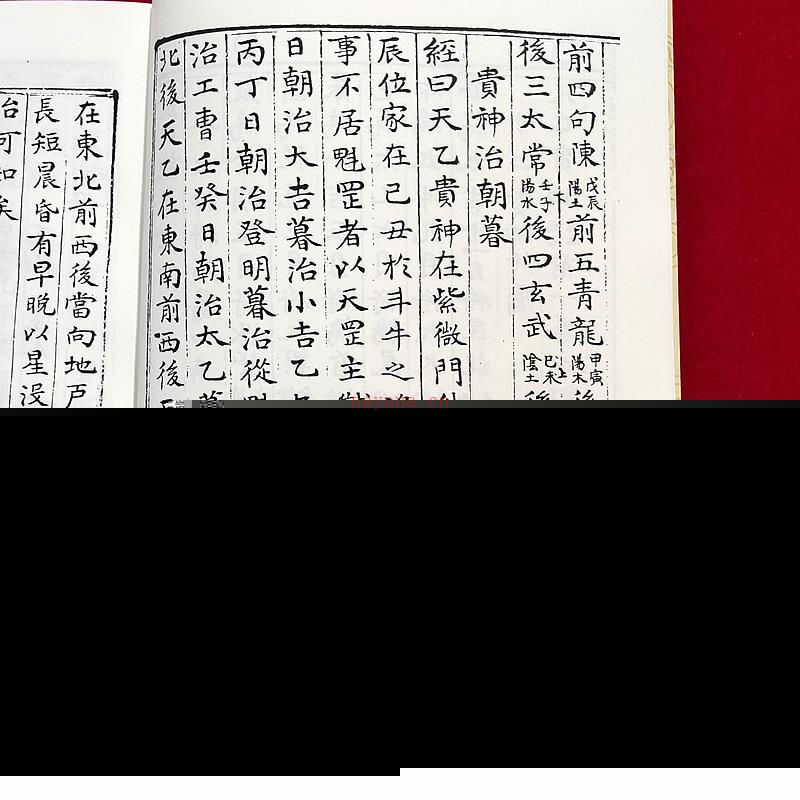 前四句陳戊辰陽土前五青龍甲寅陽木後
後三太常壬子陽水後四玄武己未陰土後
貴神治朝暮
經曰天乙貴神在紫微門
辰位家在己丑於斗牛之
事不居魁罡者以天罡主
日朝治大吉暮治小吉乙
丙丁日朝治登明暮治從
治工曹壬癸日朝治太乙暮
北後天乙在東南前西後
在東北前西後當向地戶
長短晨昏有早晚以星沒
治可知矣